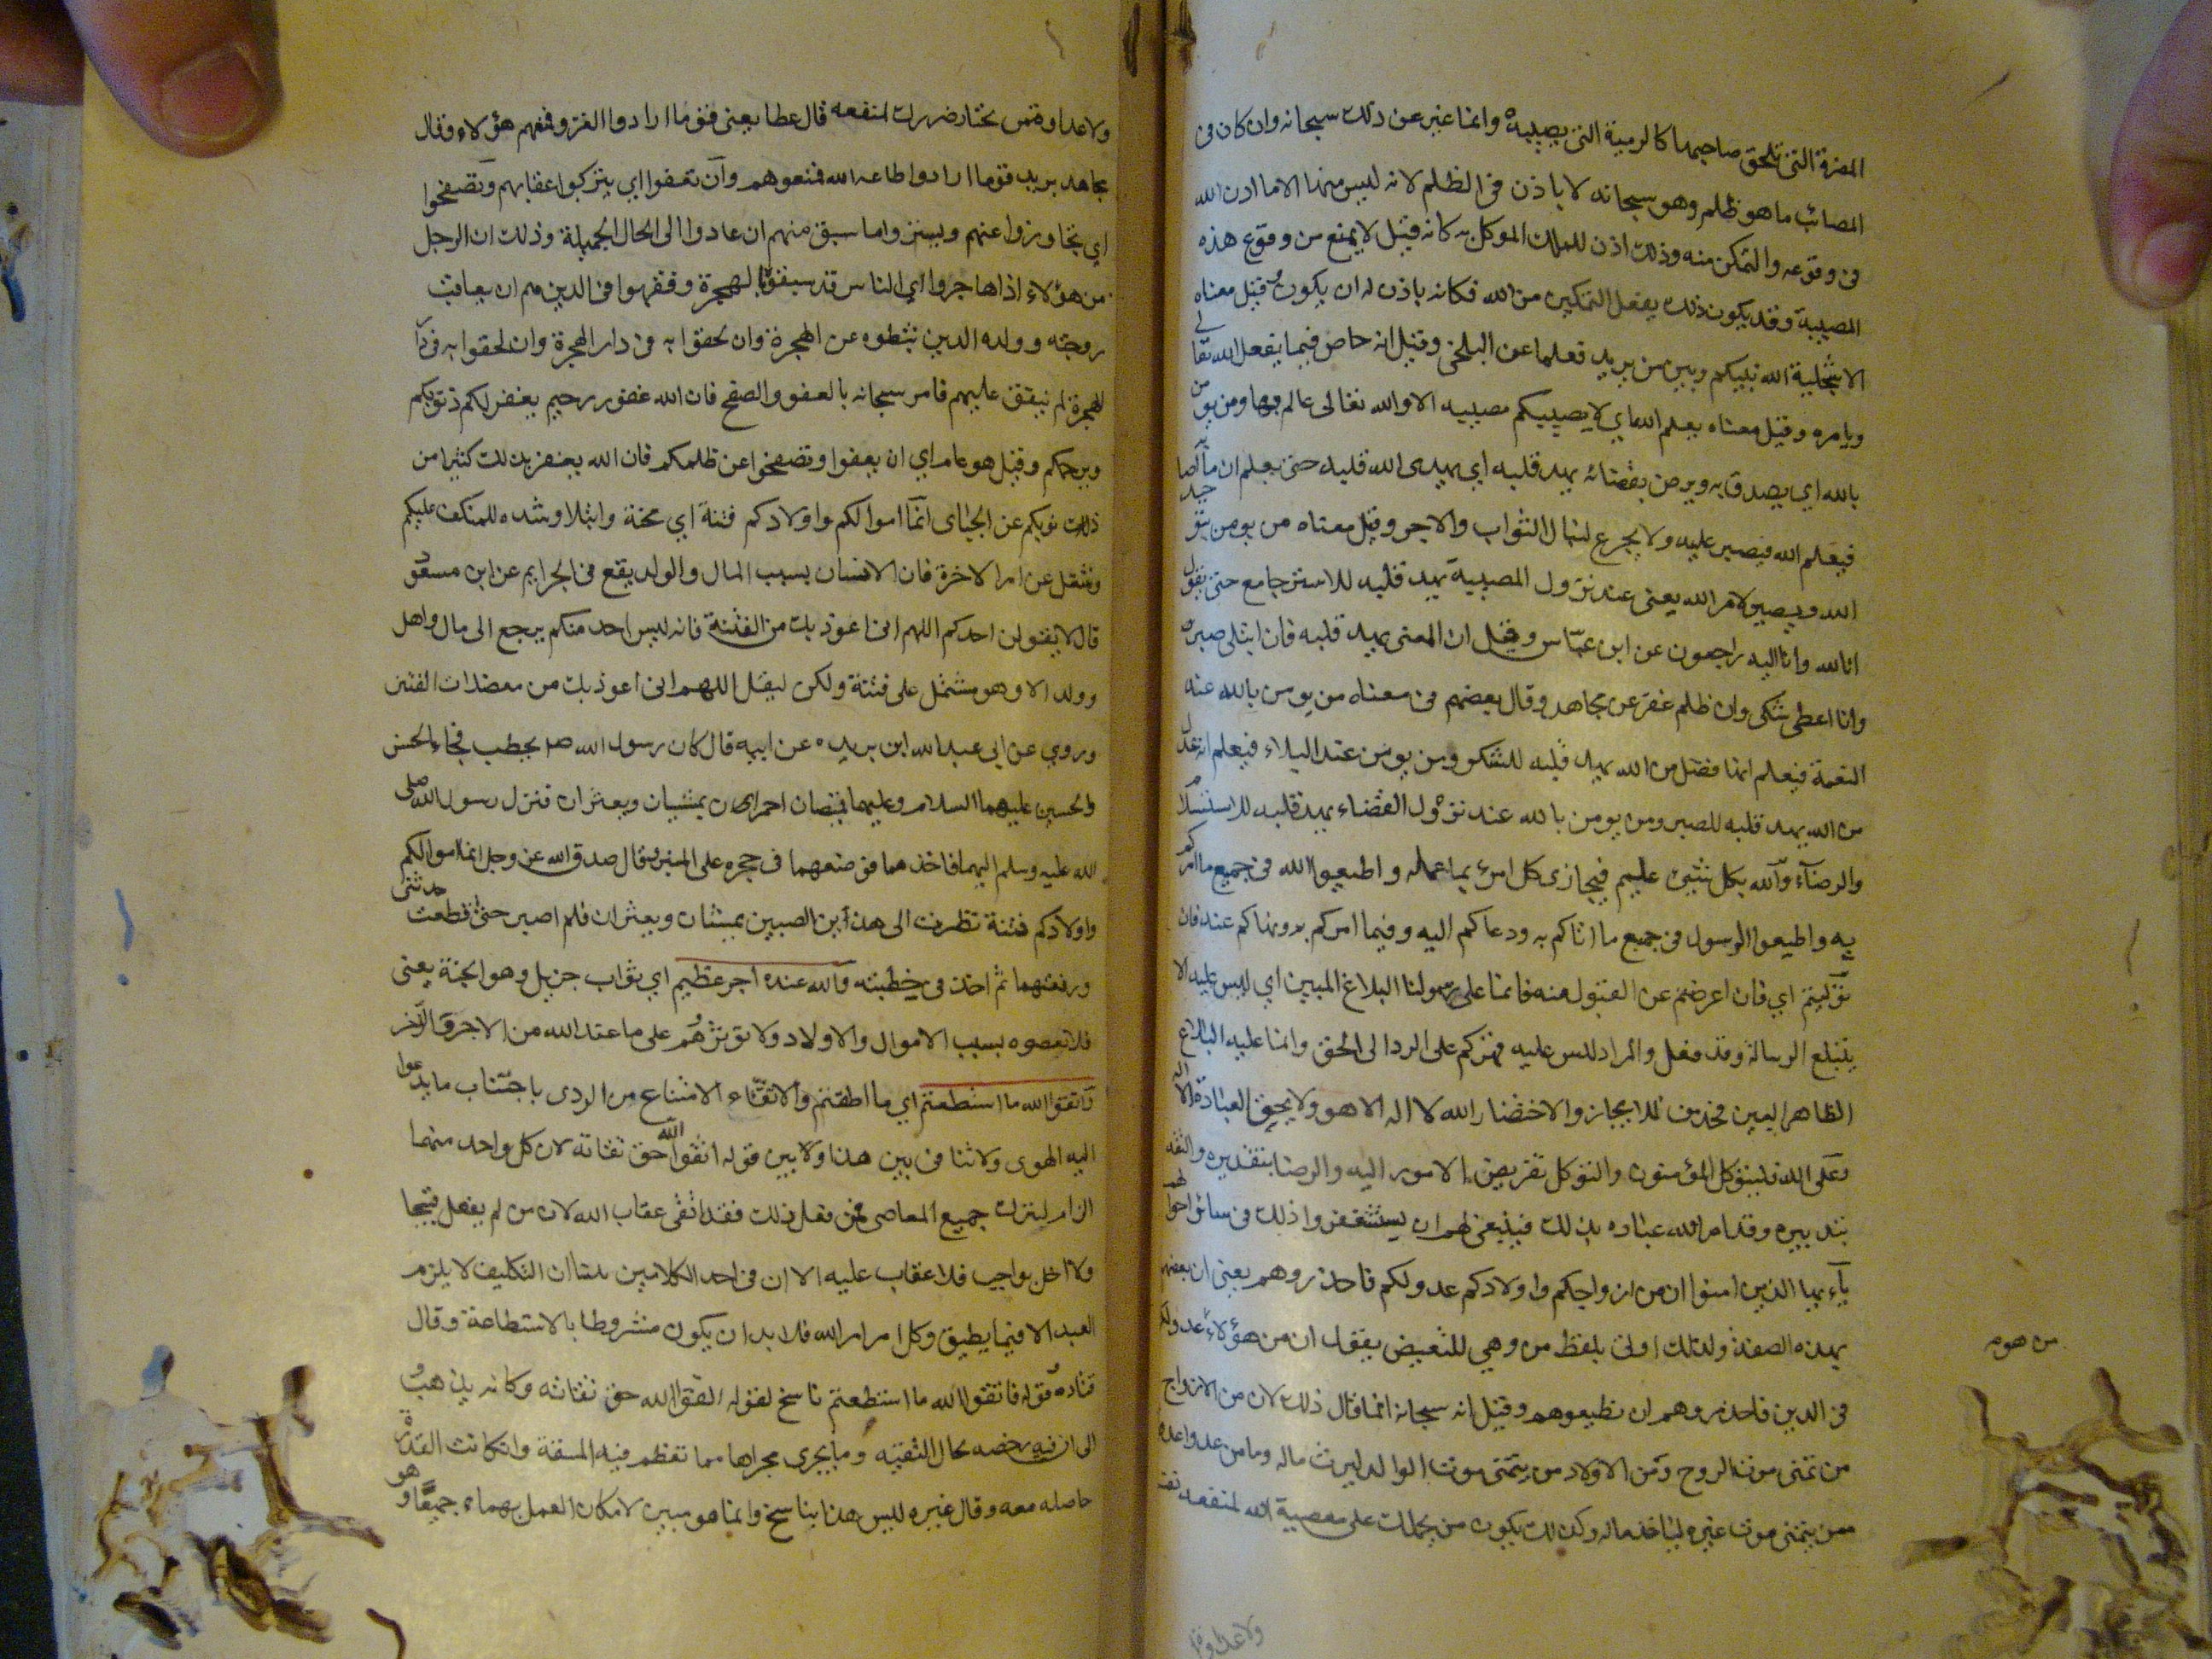 المضرة التي تلحق صاحبها كالرمية التي يصيبه وانما عبر عن ذلك سبحانه وان كان في
المصائب ما هو ظلم وهو سبحانه لا ياذن في الظلم لانه ليس منها الا ما اذن الله
في وقوعه والتمكن منه وذلك اذن للملك الموكل به كانه قيل لا يمنع من وقوع هذه
المصيبة وقد يكون ذلك بفعل التمكين من الله فكانه ياذن له ان يكون وقيل معناه
الا بتخلية الله بينكم وبين من يريد فعلها عن البلخي وقيل انه خاص فيما يفعل الله تعالى
ويامره وقيل معناه بعلم الله اي لا يصيبكم مصيبه الا والله تعالى عالم بها ومن يومن
بالله اي يصدق به ويرض بقضائه يهد قلبه اي يهدى الله قلبه حتى يعلم ان ما اصابه
فبعلم الله فيصبر عليه ولا يجزع لينال الثواب والاجر وقيل معناه من يومن بتوحيد
الله ويصبر لامر الله يعنى عند نزول المصيبة يهد قلبه للاسترجاع حتى يقول
انا لله وانا اليه راجعون عن ابن عباس وقيل ان المعنى يهد قلبه فان ابتلى صبر
وانا اعطى شكر وان ظلم غفر عن مجاهد وقال بعضهم في معناه من يومن بالله عند
النعمة فيعلم انها فضل من الله يهد قلبه للشكر ومن يومن عند البلاء فيعلم انه عدل
من الله يهد قلبه للصبر ومن يومن بالله عند نزول القضاء يهد قلبه للاستسلام
والرضاء والله بكل شيئ عليم فيجازى كل امرئ بما عمله واطيعوا الله في جميع ما امركم
به واطيعوا الرسول في جميع ما اتاكم به ودعاكم اليه وفيما امركم به ونهاكم عنه فان
توليتم اي فان اعرضتم عن القبول منه فانما على رسولنا البلاغ المبين اي ليس عليه الا
تبليغ الرسالة وقد فعل والمراد ليس عليه قهركم على الرد الى الحق وانما عليه البلاغ
الظاهر البين فحذف للايجاز والاختصار الله لا اله الا هو ولا يحق العبادة الا له
وعلى الله فليتوكل المؤمنون والتوكل تفويض الامور اليه والرضا بتقديره والثقه
بتدبيره وقد امر الله عباده بذلك فينبغي لهم ان يستشعروا ذلك في سائر احوالهم
يآء يها الذين امنوا ان من ازواجكم واولادكم عدو لكم فاحذروهم يعنى ان بعضهم
بهذه الصفة ولذلك اوتى بلفظ من وهي للتبعيض يقول ان من هؤلاء عدو لكم
من هو
في الدين فاحذروهم ان تطيعوهم وقيل انه سبحانه انما قال ذلك لان من الازواج
من تمنى موت الزوج ومن الاولاد من يتمنى موت الوالد ليرث ماله وما من عدو اعدى
ممن يتمنى موت غيره لياخذ ماله وكذلك يكون من يحملك على معصية الله لمنفعه نفسه
ولا عداوة
ولا عداوة ممن يختار ضررك لمنفعه قال عطا يعنى قوما ارادوا الغزو فمنعهم هؤلاء وقال
مجاهد يريد قوما ارادوا طاعة الله فمنعوهم وان تعفوا اي يتركوا عقابهم وتصفحوا
اي تجاوزوا عنهم ويستروا ما سبق منهم ان عادوا الى الحال الجميلة وذلك ان الرجل
من هؤلاء اذا هاجروا اي الناس قد سبقوا بالهجرة وفقهوا في الدين هم ان يعاقب
زوجته وولده الذين ثبطوه عن الهجرة وان لحقوا به في دار الهجرة وان لحقوا به في دار
الهجرة لم ينفق عليهم فامر سبحانه بالعفو والصفح فان الله غفور رحيم يغفر لكم ذنوبكم
ويرحمكم وقيل هو عام اي ان يعفوا وتصفحوا عن ظلمكم فان الله يغفر بذلك كثيرا من
ذنوبكم عن الجبائى انما اموالكم واولادكم فتنة اي محنة وابتلا وشده للمتكلف عليكم
وشغل عن امر الاخرة فان الانسان بسبب المال والولد يقع في الجرايم عن ابن مسعود
قال لا يقولن احدكم اللهم اني اعوذ بك من الفتنة فانه ليس احد منكم يرجع الى مال واهل
وولد الا وهو مشتمل على فتنة ولكن ليقل اللهم اني اعوذ بك من معضلات الفتن
وروي عن ابي عبدالله ابن بريده عن ابيه قال كان رسول الله ص يخطب فجاء الحسن
والحسين عليهما السلام وعليهما قميصان احمران يمشيان ويعثران فنزل رسول الله صلى
الله عليه وسلم اليهما فاخذهما فوضعهما في حجره على المنبر وقال صدق الله عز وجل انما اموالكم
واولادكم فتنة نظرت الى هذين الصبيين يمشيان ويعثران فلم اصبر حتى قطعت حديثى
ورفعتهما ثم اخذ في خطبته والله عنده اجر عظيم اي ثواب جزيل وهو الجنة يعنى
فلا تعصوه بسبب الاموال والاولاد ولا توثرهم على ما عند الله من الاجر والذخر
فاتقوا الله ما استطعتم اي ما اطقتم والاتقاء الامتناع من الردى باجتناب ما يدعوا
اليه الهوى ولا تنافى بين هذا ولا بين قوله اتقوا الله حق تقاته لان كل واحد منهما
الزام لترك جميع المعاصى فمن فعل ذلك فقد اتقى عقاب الله لان من لم يفعل قبيحا
ولا اخل بواجب فلا عقاب عليه الا ان في احد الكلامين بيان ان التكليف لا يلزم
العبد الا فيما يطيق وكل امر امر الله فلا بد ان يكون مشروطا بالاستطاعة وقال
قتاده قوله فاتقوا الله ما استطعتم ناسخ لقوله اتقوا الله حق تقاته وكانه يذهب
الى ان فيه رخصه لحال التقيه وما يجرى مجراها مما تعظم فيه المشقة وان كانت القدرة
حاصله معه وقال غيره ليس هذا بناسخ وانما هو مبين لامكان العمل بهما جميعا وهو